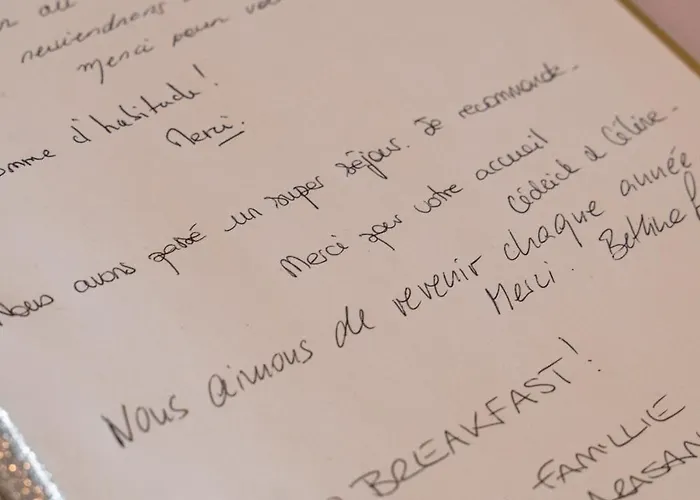 au
reviendrons
merci pour
comme d'habitude!
Merci.
Nous avons passé un super séjour. Je recommande.
Merci pour votre accueil
Cédrick & Céline.
Nous aimons de revenir chaque année
Merci. Bettina
BREAKFAST!
FAMILIE